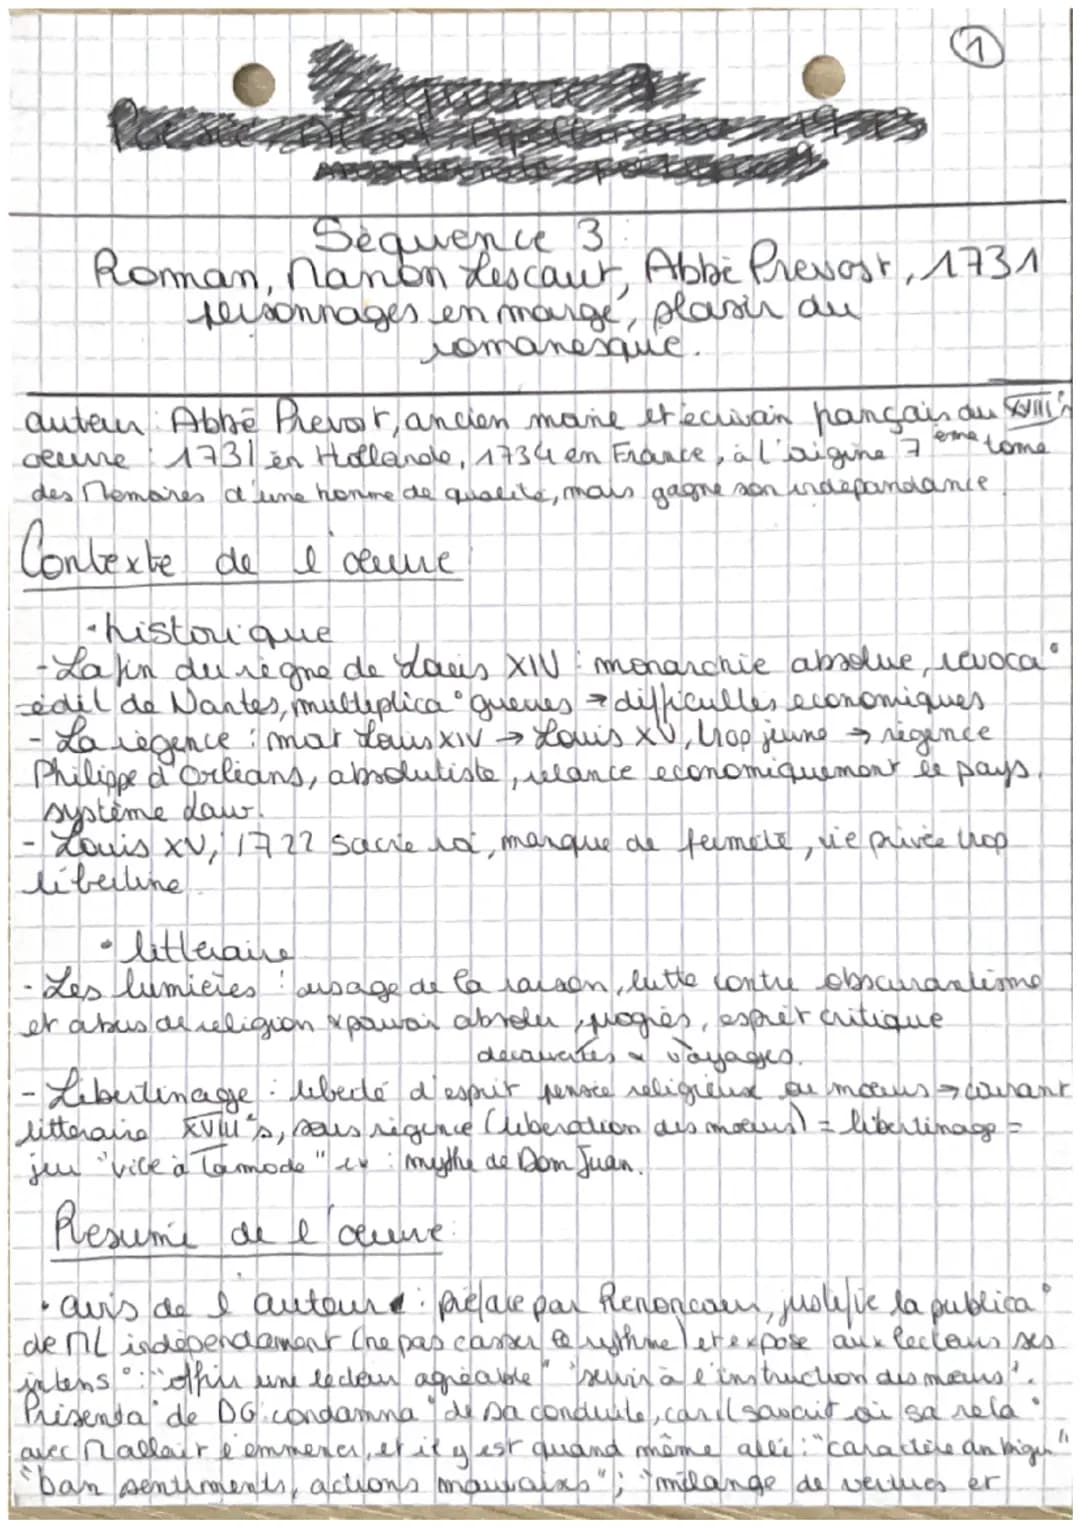 1
Séquence 3 :
Roman, Manon Lescaut, Abbé Prevost, 1731
personnages en marge, plasir du
romanesque.
auteur : Abbé Prevost, ancien moine et écrivain français du XVIII°s
oeuvre : 1731 en Hollande, 1734 en France, à l'origine 7ème tome
des Memoires d'une homme de qualité, mais gagne son indépandance.
Contexte de l'oeuvre :
• historique
- La fin du règne de Louis XIV : monarchie absolue, revoca°
édit de Nantes, multiplica° guerres → difficultés economiques
- La régence : mort Louis XIV → Louis XV, trop jeune → régence
Philippe d'Orléans, absolutiste, relance economiquement le pays.
système Law.
- Louis XV, 1722 sacré roi, manque de fermeté, vie privée trop
libertine.
• litteraire
- Les lumières : usage de la raison, lutte contre obscurantisme
et abus de religion x pouvoir absolu, progrès, esprit critique
decouvertes x voyages.
- Libertinage : liberté d'esprit pensée religieux ou moeurs → courant
litteraire XVIII°s, sous régence (liberation des moeurs) = libertinage =
jeu "vice à la mode" ex : mythe de Dom Juan.
Resumé de l'oeuvre :
• avis de l'auteur : préface par Renoncour, justifie la publica°
de ML indépendament (ne pas casser le rythme) et expose aux lecteurs ses
intens° : "offrir une lecteur agréable" "servir à l'instruction des moeurs".
Présenta° de DG : condamna° de sa conduite, car il savait où sa rela°
avec M allait l'emmener, et il y est quand même allé : "caractère ambigu"
"bon sentiments, actions mauvaises" ; "mélange de vertues et